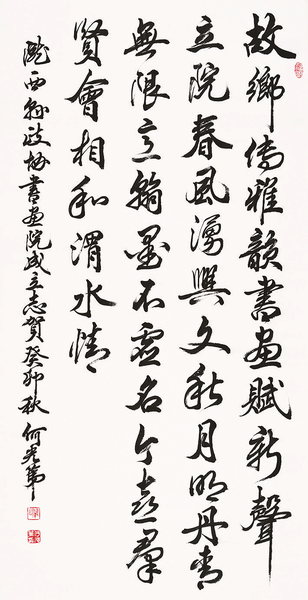 故鄉傳雅韻書畫賦新聲
立院春風湧興文秋月明丹青
無限意翰墨不虛名今喜群
賢會相和渭水情
隴西縣政協書畫院成立志賀癸卯秋何光第